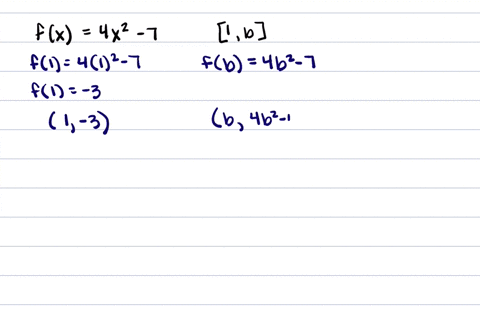 f(x) = 4x² -7 [1, b]
f(1) = 4(1)² -7 f(b) = 4b² -7
f(1) = -3
(1, -3) (b, 4b² -